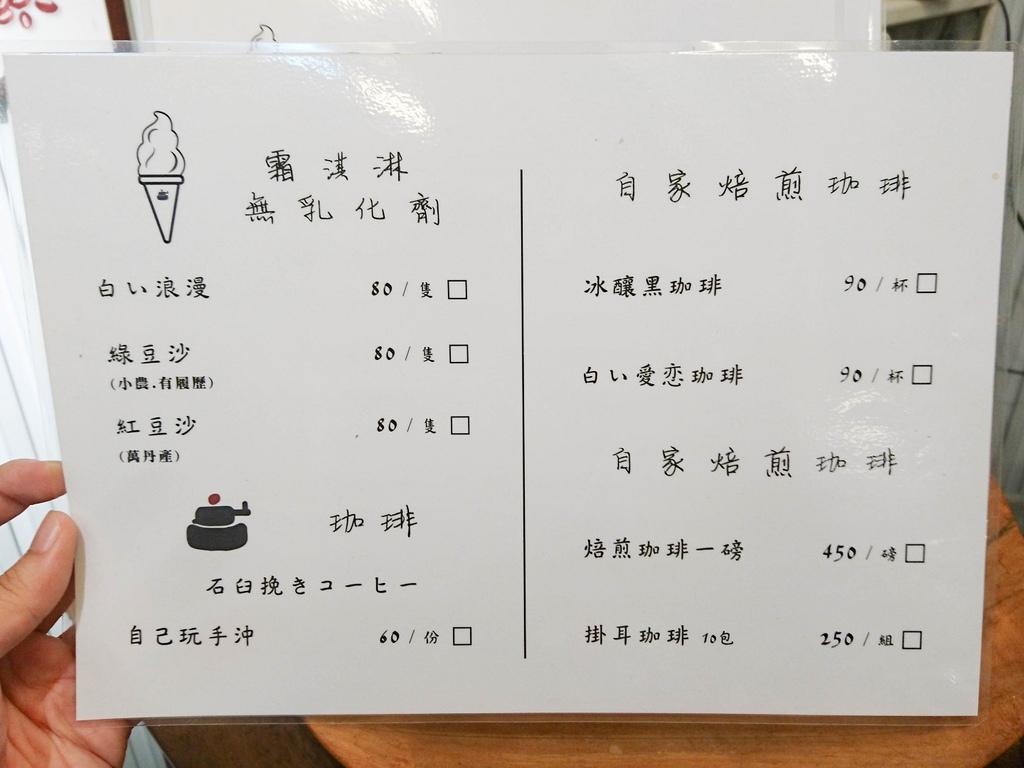 霜淇淋
無乳化劑
白い浪漫 80/隻
綠豆沙 80/隻
(小農.有履歷)
紅豆沙 80/隻
(萬丹產)
珈琲
石臼挽きコーヒー
自己玩手沖 60/份
自家焙煎珈琲
冰釀黑珈琲 90/杯
白い愛恋珈琲 90/杯
自家焙煎珈琲
焙煎珈琲一磅 450/磅
掛耳珈琲 10包 250/組